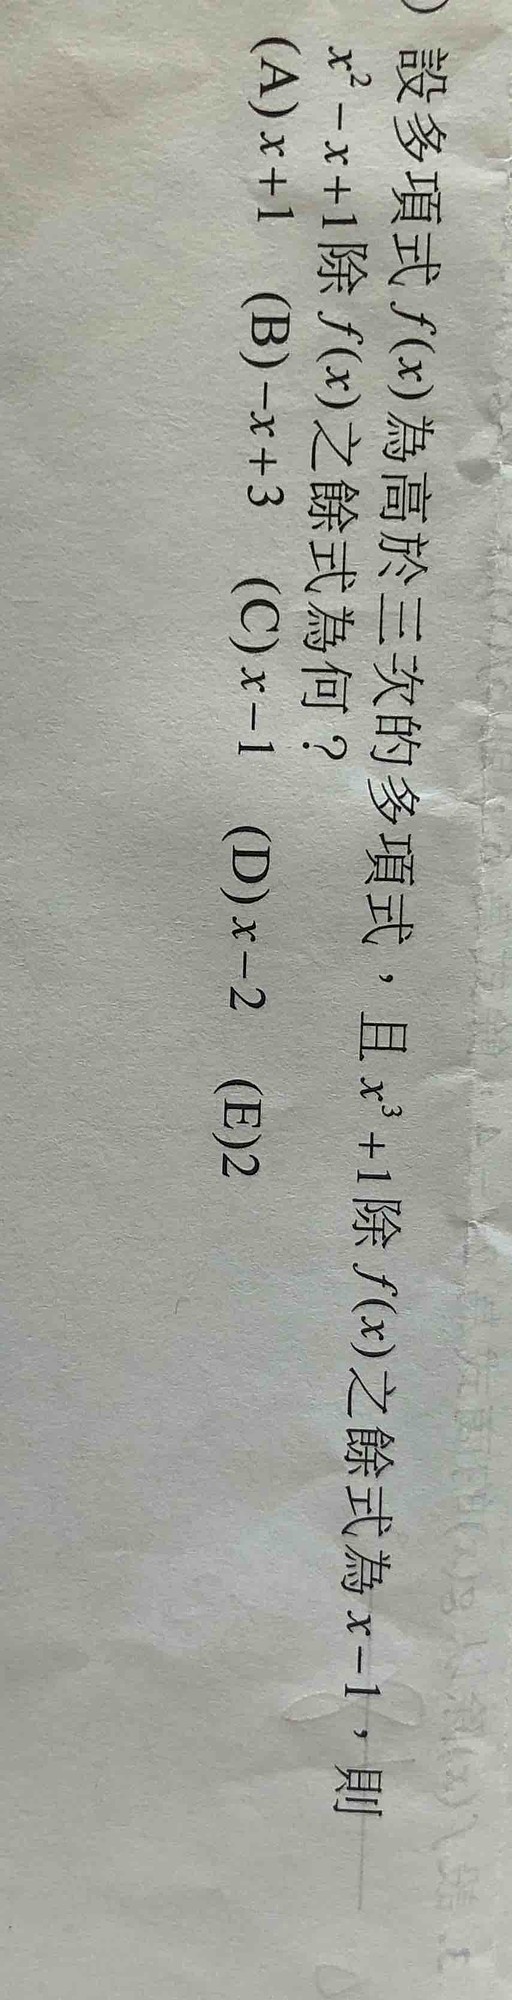 ) 設多項式 f(x) 為高於三次的多項式，且 x³+1 除 f(x) 之餘式為 x−1，則
x²−x+1 除 f(x) 之餘式為何？
(A) x+1 (B) −x+3 (C) x−1 (D) x−2 (E)2